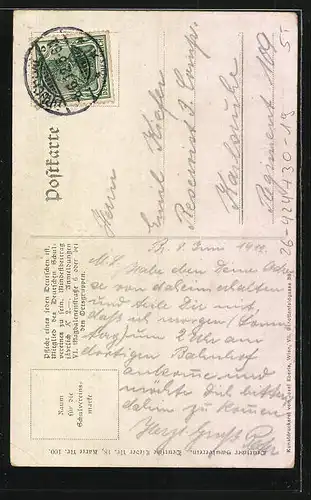 Postkarte
Herrn
Emil Kiefer
Reservist 3. Comp.
Regiment 109
Karlsruhe
Pflicht eines jeden Deutschen ist,
Mitglied des Deutschen Schul-
vereines zu sein. Mindestbeitrag
jährlich K 2.—. Anmeldungen
VI. Magdalenenstraße 6 oder bei
den Ortsgruppen.
Raum
für die
Schulvereins-
marke
8. Juni
M. L. Habe eben Deine Karte
von daheim erhalten
und teile Dir mit,
daß ich morgen (Sonn-
tag) um 2 Uhr am
dortigen Bahnhof
ankomme und
möchte Dich bitten
dahin zu kommen
Herzl. Gruß
Deutscher Schulverein. Deutsche Lieder Nr. 18, Karte Nr. 100.
Kunstdruckerei von Josef Eberle, Wien, VII.
26-424430-19
5T